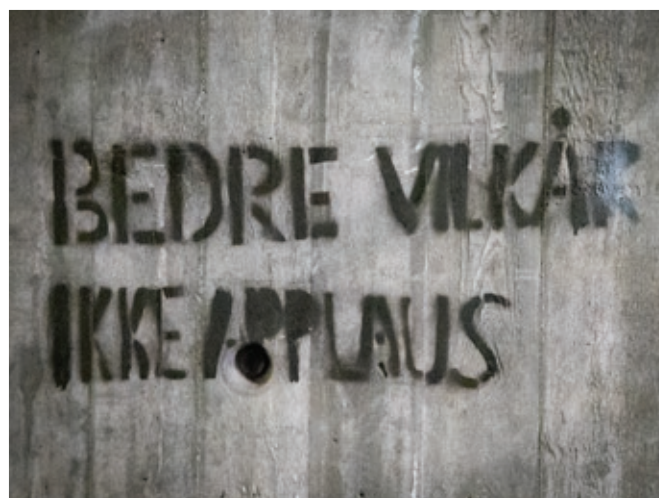 BEDRE VILKÅR
IKKE APPLAUS